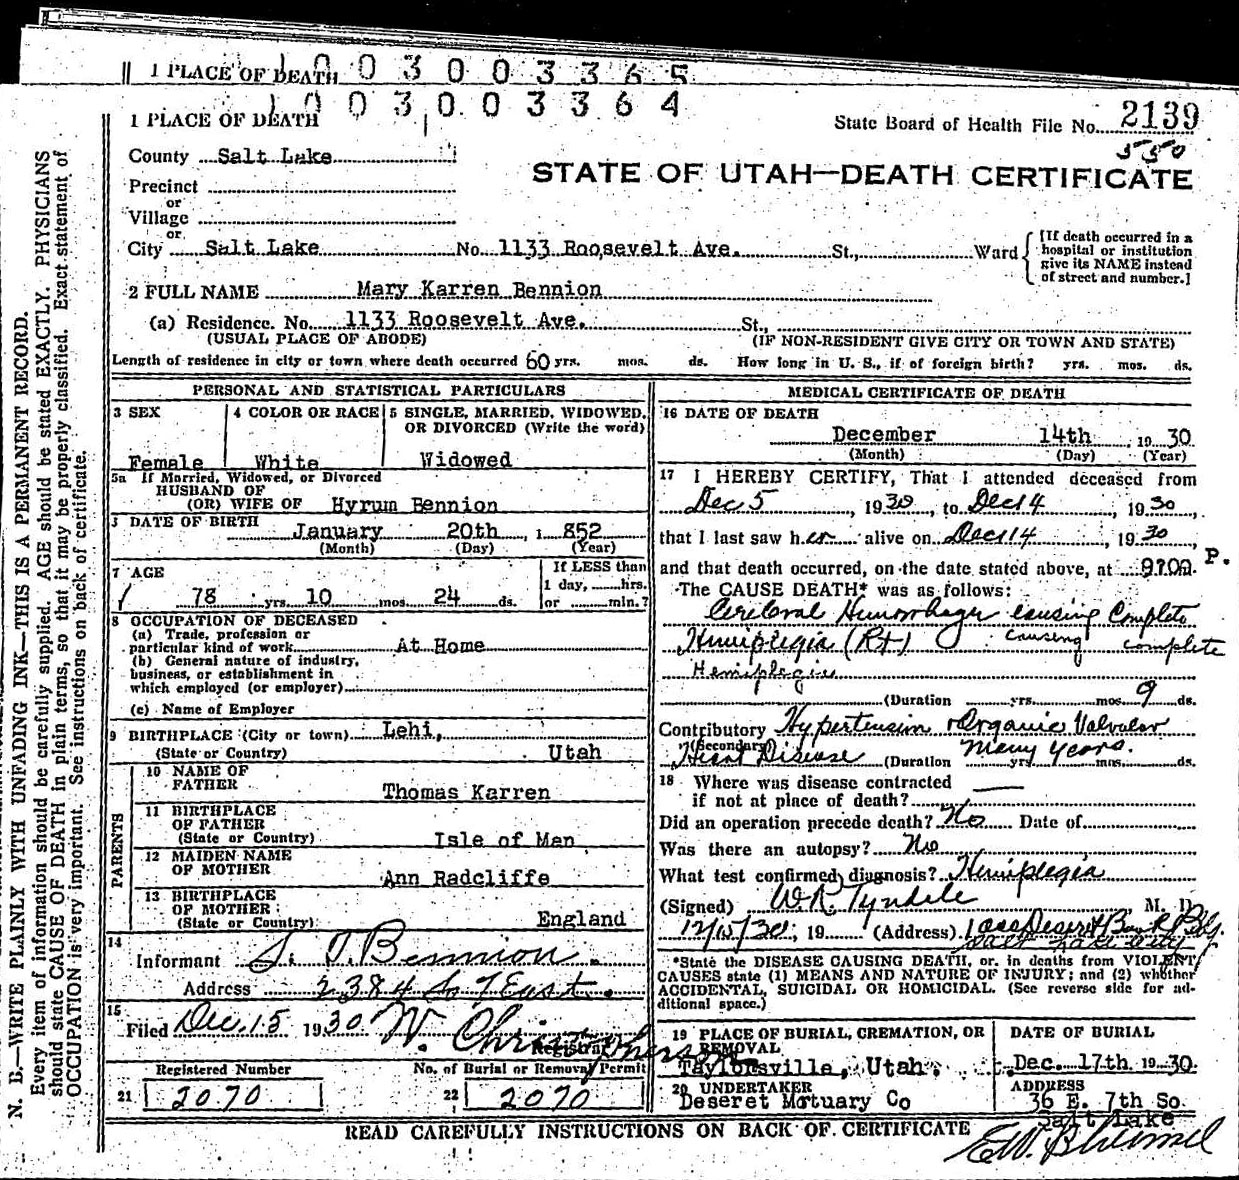 1 PLACE OF DEATH 1003003365
1003003364
1 PLACE OF DEATH
State Board of Health File No. 2139
550
County Salt Lake
STATE OF UTAH—DEATH CERTIFICATE
Precinct
or
Village
or
City Salt Lake No. 1133 Roosevelt Ave. St., Ward
[If death occurred in a
hospital or institution
give its NAME instead
of street and number.]
2 FULL NAME Mary Karren Bennion
(a) Residence. No. 1133 Roosevelt Ave. St.,
(USUAL PLACE OF ABODE) (IF NON-RESIDENT GIVE CITY OR TOWN AND STATE)
Length of residence in city or town where death occurred 60 yrs. mos. ds. How long in U. S., if of foreign birth? yrs. mos. ds.
PERSONAL AND STATISTICAL PARTICULARS
3 SEX
Female
4 COLOR OR RACE
White
5 SINGLE, MARRIED, WIDOWED,
OR DIVORCED (Write the word)
Widowed
5a If Married, Widowed, or Divorced
HUSBAND OF
(OR) WIFE OF Hyrum Bennion
DATE OF BIRTH
January 20th, 1852
(Month) (Day) (Year)
7 AGE
78 yrs. 10 mos. 24 ds.
If LESS than
1 day, hrs.
or min.?
8 OCCUPATION OF DECEASED
(a) Trade, profession or
particular kind of work At Home
(b) General nature of industry,
business, or establishment in
which employed (or employer)
(c) Name of Employer
9 BIRTHPLACE (City or town) Lehi,
(State or Country) Utah
PARENTS
10 NAME OF
FATHER Thomas Karren
11 BIRTHPLACE
OF FATHER
(State or Country) Isle of Man
12 MAIDEN NAME
OF MOTHER Ann Radcliffe
13 BIRTHPLACE
OF MOTHER
(State or Country) England
14
Informant S. T. Bennion.
Address 2384 So 7 East.
15
Filed Dec. 15 1930 W. Christopherson
Registrar
Registered Number No. of Burial or Removal Permit
21 2070 22 2070
MEDICAL CERTIFICATE OF DEATH
16 DATE OF DEATH
December 14th 1930
(Month) (Day) (Year)
17 I HEREBY CERTIFY, That I attended deceased from
Dec 5, 1930, to Dec 14, 1930,
that I last saw her alive on Dec 14, 1930,
and that death occurred, on the date stated above, at P.
The CAUSE DEATH* was as follows:
Cerebral Humorrhage causing Complete
Hemiplegia (Rt) causing complete
Hemiplegia
(Duration yrs. mos. 9 ds.
Contributory Hypertension & Organic Valvular
(Secondary)
Heart Disease (Duration many years. yrs. mos. ds.
18 Where was disease contracted
if not at place of death?
Did an operation precede death? No Date of
Was there an autopsy? No
What test confirmed diagnosis? Hemiplegia
(Signed) W.R. Tyndale M. D.
12/15/30, 19 (Address) Deseret Bank Bldg.
Salt Lake City
*State the DISEASE CAUSING DEATH, or, in deaths from VIOLENT
CAUSES state (1) MEANS AND NATURE OF INJURY; and (2) whether
ACCIDENTAL, SUICIDAL OR HOMICIDAL. (See reverse side for ad-
ditional space.)
19 PLACE OF BURIAL, CREMATION, OR
REMOVAL
Taylorsville, Utah.
DATE OF BURIAL
Dec. 17th 1930
20 UNDERTAKER
Deseret Mortuary Co
ADDRESS
36 E. 7th So.
Salt Lake
READ CAREFULLY INSTRUCTIONS ON BACK OF CERTIFICATE
N. B.—WRITE PLAINLY WITH UNFADING INK—THIS IS A PERMANENT RECORD.
Every item of information should be carefully supplied. AGE should be stated EXACTLY. PHYSICIANS
should state CAUSE OF DEATH in plain terms, so that it may be properly classified. Exact statement of
OCCUPATION is very important. See instructions on back of certificate.